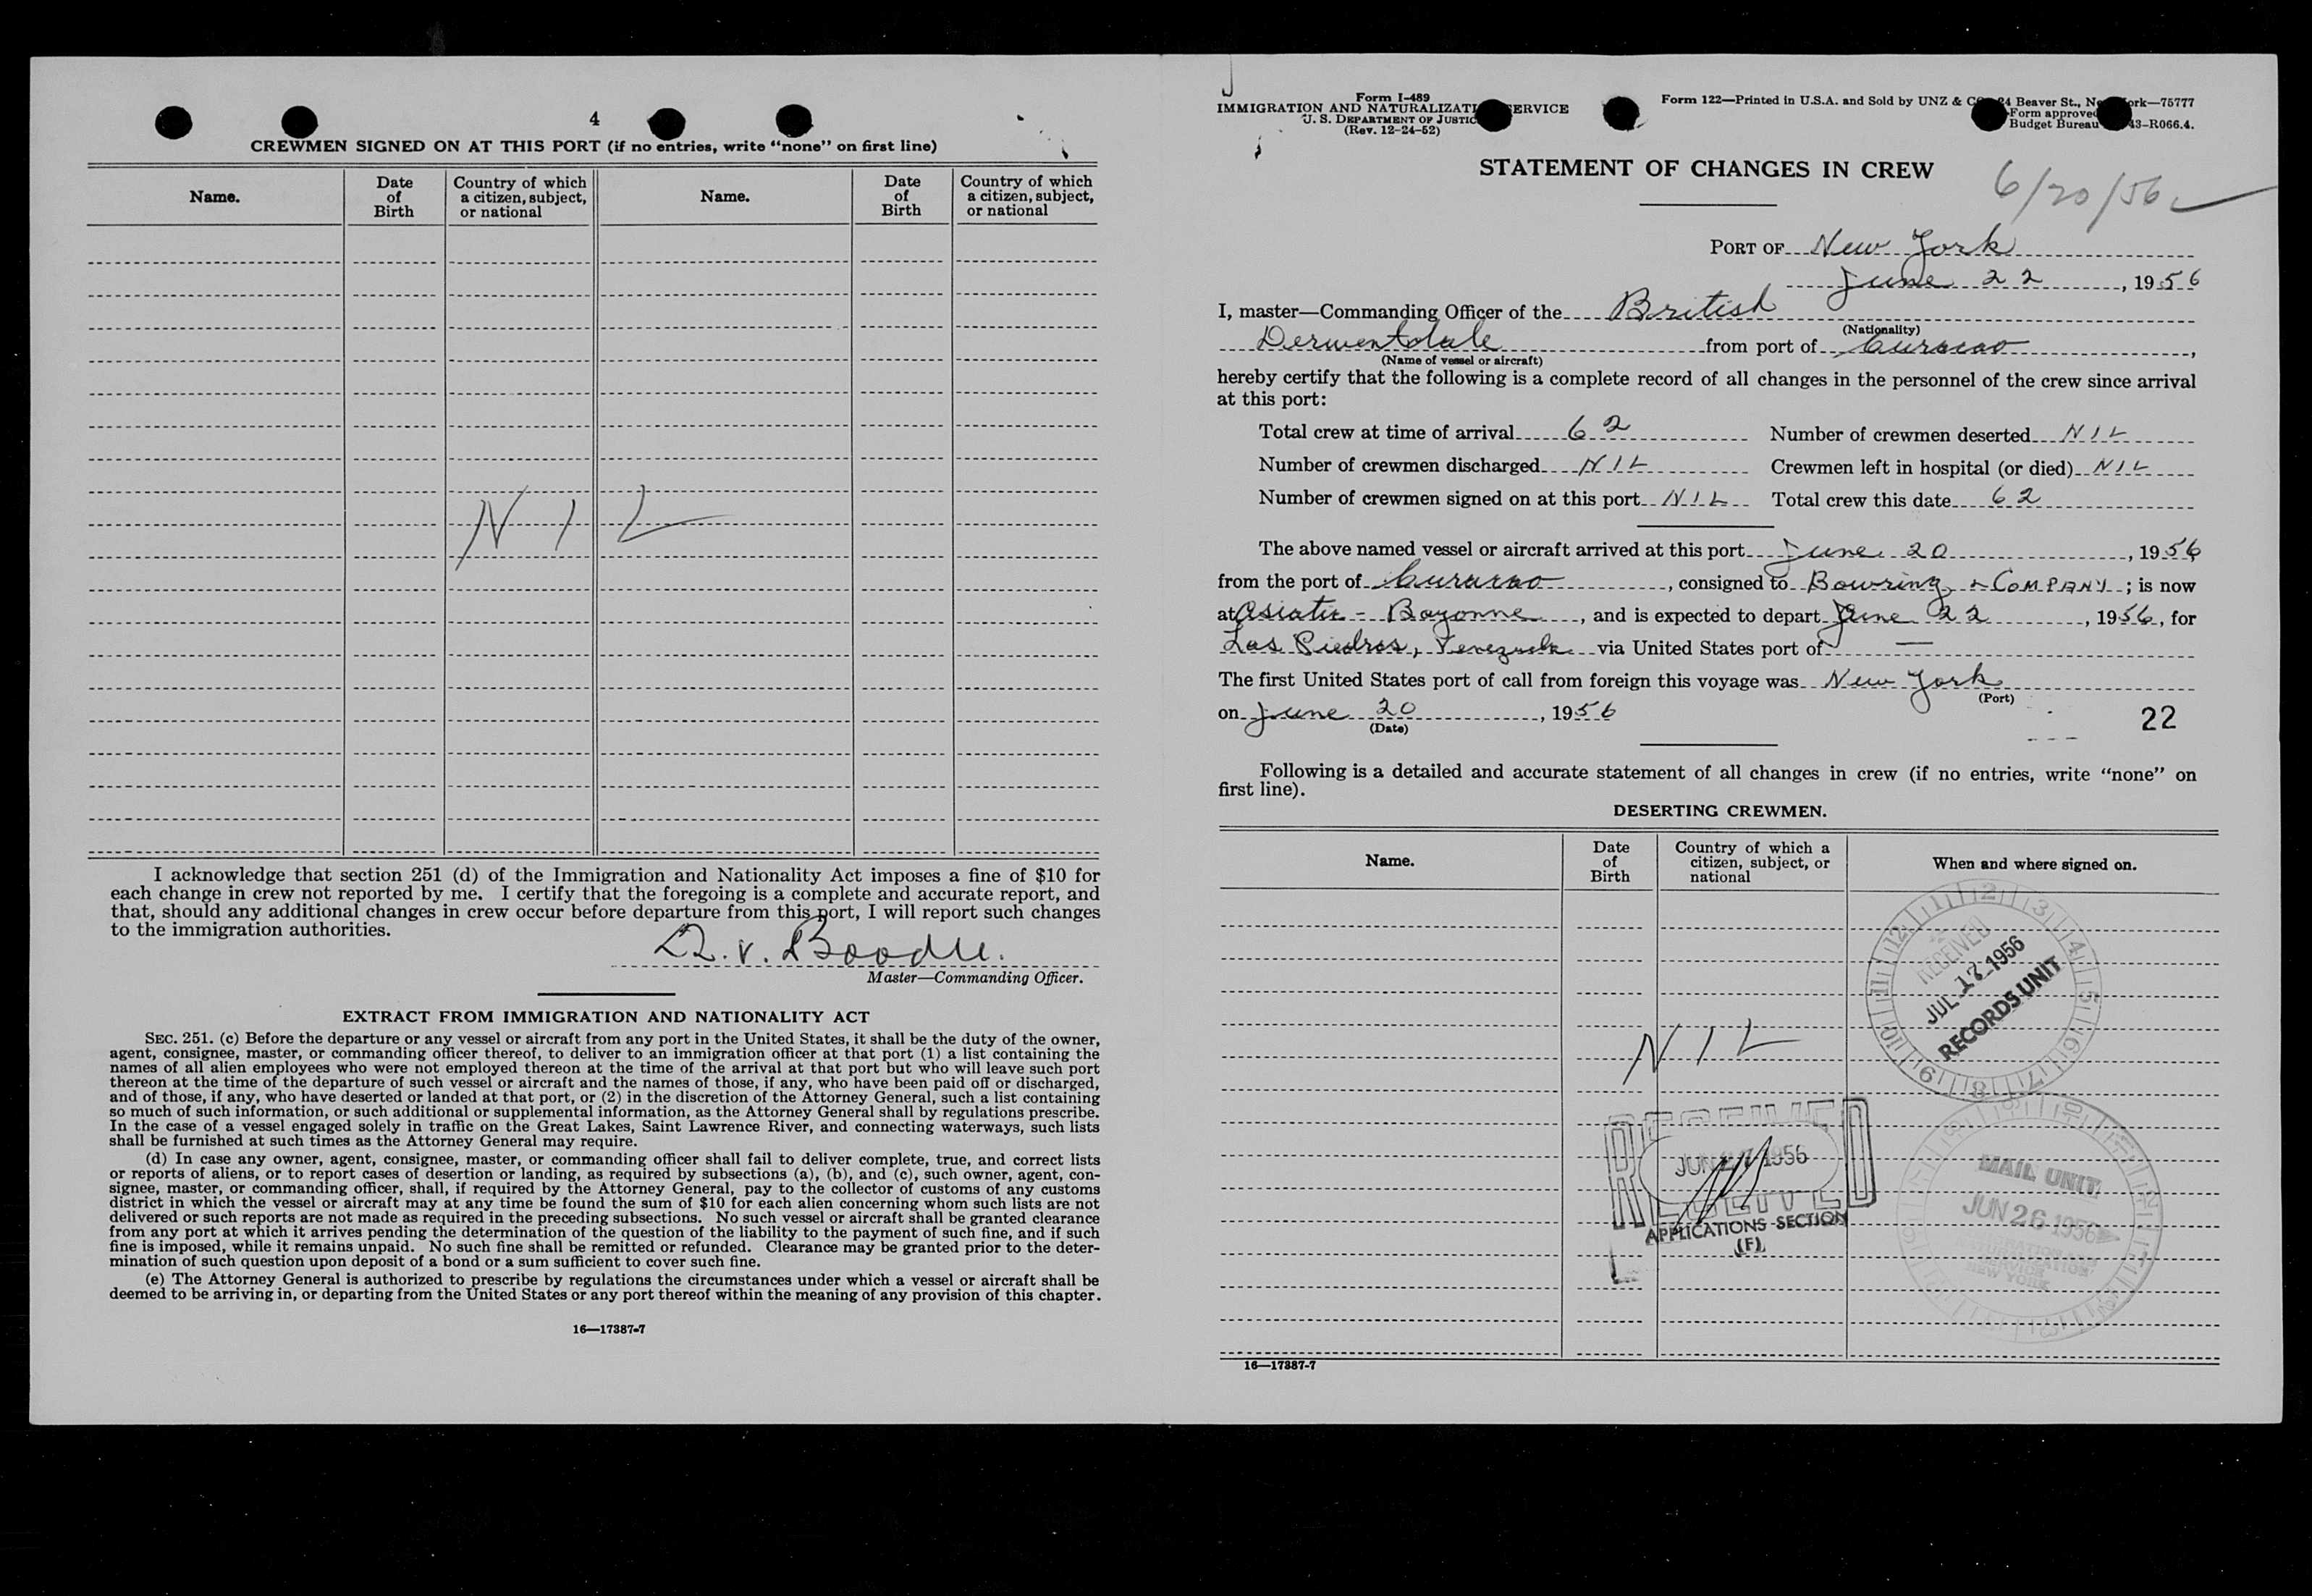 4
CREWMEN SIGNED ON AT THIS PORT (if no entries, write “none” on first line)
Name. Date of Birth Country of which a citizen, subject, or national Name. Date of Birth Country of which a citizen, subject, or national
NIL
I acknowledge that section 251 (d) of the Immigration and Nationality Act imposes a fine of $10 for
each change in crew not reported by me. I certify that the foregoing is a complete and accurate report, and
that, should any additional changes in crew occur before departure from this port, I will report such changes
to the immigration authorities.
Boodle.
Master—Commanding Officer.
EXTRACT FROM IMMIGRATION AND NATIONALITY ACT
SEC. 251. (c) Before the departure or any vessel or aircraft from any port in the United States, it shall be the duty of the owner,
agent, consignee, master, or commanding officer thereof, to deliver to an immigration officer at that port (1) a list containing the
names of all alien employees who were not employed thereon at the time of the arrival at that port but who will leave such port
thereon at the time of the departure of such vessel or aircraft and the names of those, if any, who have been paid off or discharged,
and of those, if any, who have deserted or landed at that port, or (2) in the discretion of the Attorney General, such a list containing
so much of such information, or such additional or supplemental information, as the Attorney General shall by regulations prescribe.
In the case of a vessel engaged solely in traffic on the Great Lakes, Saint Lawrence River, and connecting waterways, such lists
shall be furnished at such times as the Attorney General may require.
(d) In case any owner, agent, consignee, master, or commanding officer shall fail to deliver complete, true, and correct lists
or reports of aliens, or to report cases of desertion or landing, as required by subsections (a), (b), and (c), such owner, agent, con-
signee, master, or commanding officer, shall, if required by the Attorney General, pay to the collector of customs of any customs
district in which the vessel or aircraft may at any time be found the sum of $10 for each alien concerning whom such lists are not
delivered or such reports are not made as required in the preceding subsections. No such vessel or aircraft shall be granted clearance
from any port at which it arrives pending the determination of the question of the liability to the payment of such fine, and if such
fine is imposed, while it remains unpaid. No such fine shall be remitted or refunded. Clearance may be granted prior to the deter-
mination of such question upon deposit of a bond or a sum sufficient to cover such fine.
(e) The Attorney General is authorized to prescribe by regulations the circumstances under which a vessel or aircraft shall be
deemed to be arriving in, or departing from the United States or any port thereof within the meaning of any provision of this chapter.
16—17387-7
Form I-489
IMMIGRATION AND NATURALIZATI ERVICE
U. S. DEPARTMENT OF JUSTIC
(Rev. 12-24-52)
Form 122—Printed in U.S.A. and Sold by UNZ & C 24 Beaver St., N ork—75777
Form approved
Budget Bureau 43-R066.4.
STATEMENT OF CHANGES IN CREW
6/20/56
PORT OF New York
June 22, 1956
I, master—Commanding Officer of the British
(Nationality)
Derwentdale from port of Curacao,
(Name of vessel or aircraft)
hereby certify that the following is a complete record of all changes in the personnel of the crew since arrival
at this port:
Total crew at time of arrival 62 Number of crewmen deserted NIL
Number of crewmen discharged NIL Crewmen left in hospital (or died) NIL
Number of crewmen signed on at this port NIL Total crew this date 62
The above named vessel or aircraft arrived at this port June 20, 1956
from the port of Curacao, consigned to Bowring & COMPANY; is now
at Asiatic - Bayonne, and is expected to depart June 22, 1956, for
Las Piedras, Venezuela via United States port of —
The first United States port of call from foreign this voyage was New York
(Port)
on June 20, 1956
(Date)
22
Following is a detailed and accurate statement of all changes in crew (if no entries, write “none” on
first line).
DESERTING CREWMEN.
Name. Date of Birth Country of which a citizen, subject, or national When and where signed on.
RECEIVED
JUL 17 1956
RECORDS UNIT
NIL
RECEIVED
JUN 27 1956
RECEIVED
APPLICATIONS SECTION
(F)
MAIL UNIT
JUN 26 1956
NEW YORK
16—17387-7